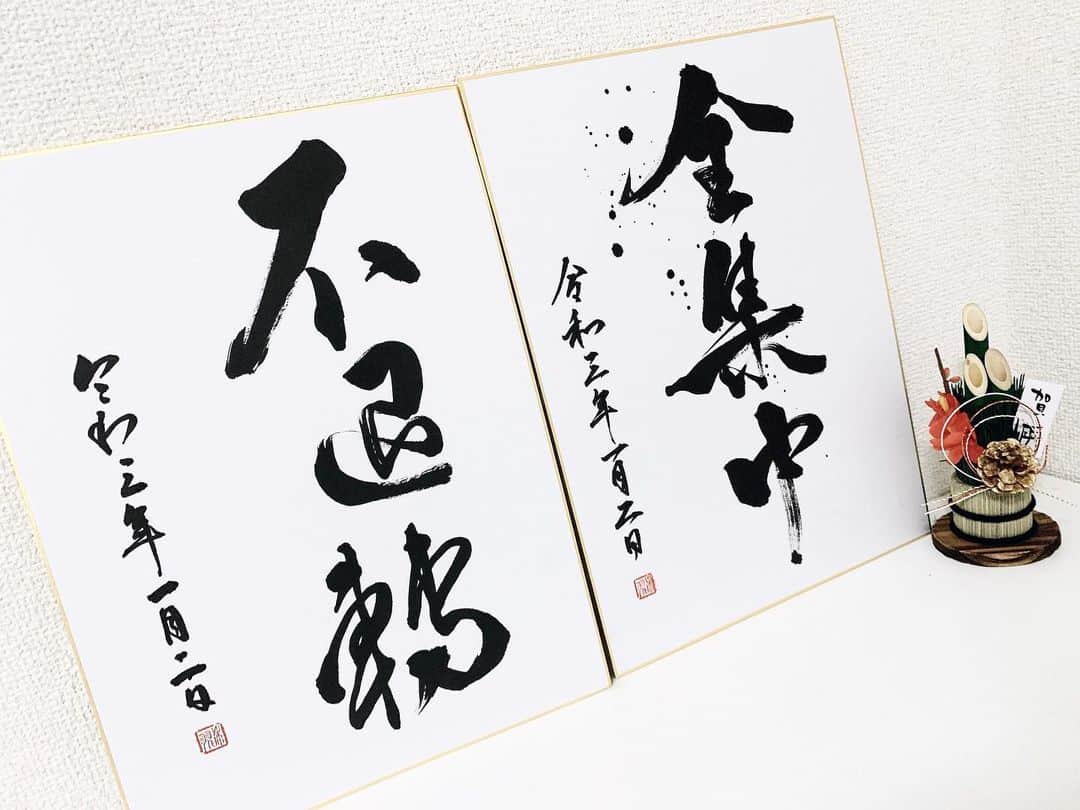 全集中
令和三年一月二日
不退轉
令和三年一月二日
賀正